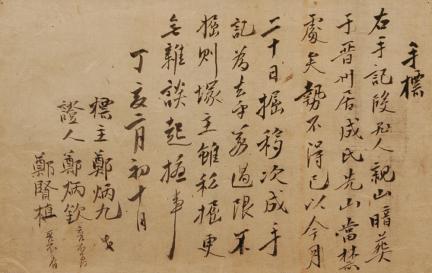 手標
右手記段矣人親山暗葬
于晋州居成氏先山當禁
處矣勢不得已以今月
二十日掘移次成手
記為去乎萬過限不
掘則塚主雖私掘更
無雜談起 事
丁亥二月初十日
標主鄭炳九
證人鄭炳欽
鄭賢植